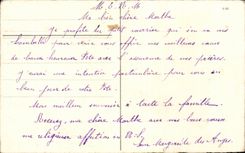 Ma bien chère Martha
Je profite du petit courrier qui s'en va à
pour venir vous offrir nos meilleurs vœux
de bonne heureuse Fête avec l'assurance de nos prières.
J'aurai une intention particulière pour vous en
ce jour de votre Fête.
Mon meilleur souvenir à toute la famille.
Recevez, ma chère Martha avec nos bons vœux
ma religieuse affection en N. S.
Sœur Marguerite des Anges.